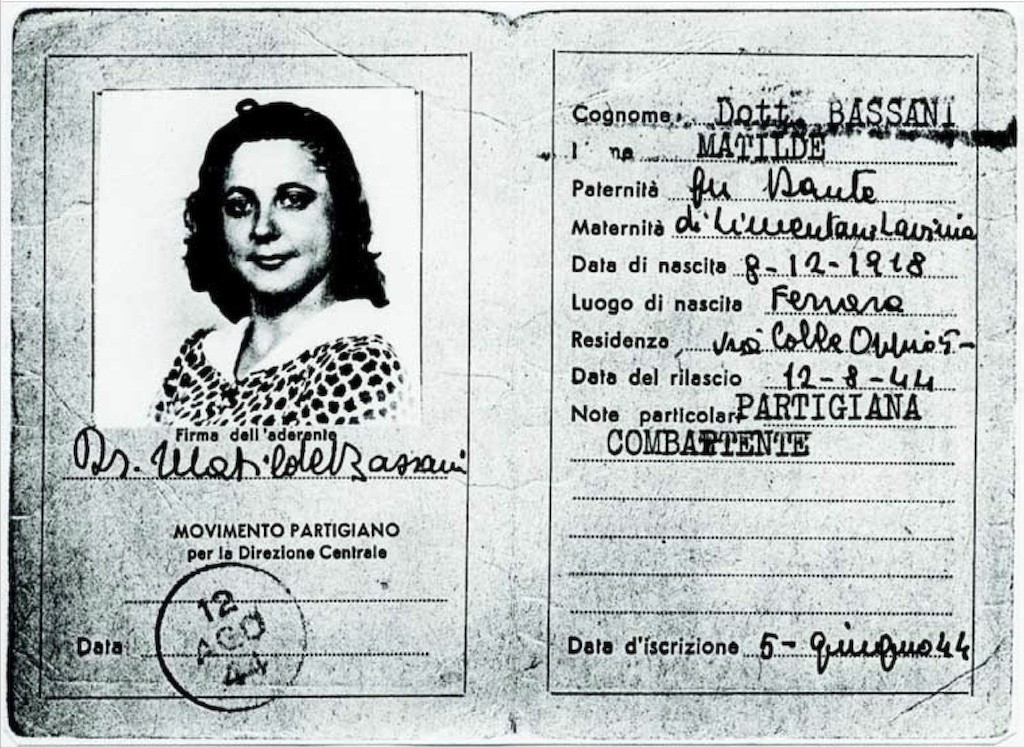 Firma dell'aderente
Dr. Matilde Bassani
MOVIMENTO PARTIGIANO
per la Direzione Centrale
Data
12
AGO
44
Cognome Dott. BASSANI
MATILDE
Paternità fu Dante
Maternità di Limentani Lavinia
Data di nascita 8-12-1918
Luogo di nascita Ferrara
Residenza via Colle Oppio 5-
Data del rilascio 12-8-44
Note particolari PARTIGIANA
COMBATTENTE
Data d'iscrizione 5- giugno 44